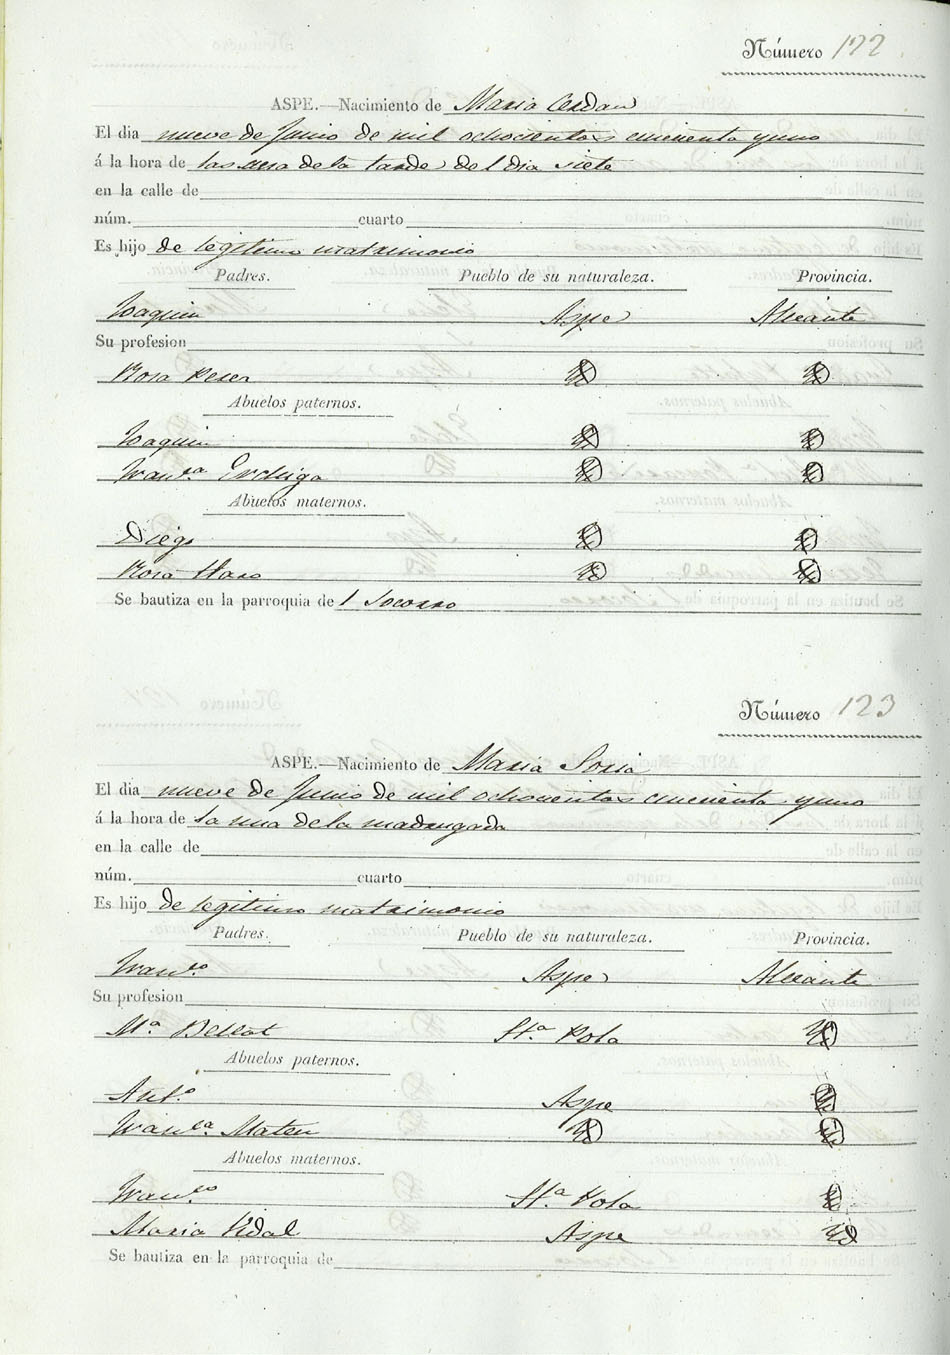 Número 122
ASPE.—Nacimiento de Maria Cerdan
El dia nueve de Junio de mil ochocientos cincuenta y uno
á la hora de las una de la tarde del dia siete
en la calle de
núm. cuarto
Es hijo de legitimo matrimonio
Padres. Pueblo de su naturaleza. Provincia.
Joaquin Aspe Alicante
Su profesion
Rosa Id Id
Abuelos paternos.
Joaquin Id Id
Fran.ca Id Id
Abuelos maternos.
Diego Id Id
Rosa Id Id
Se bautiza en la parroquia de l Socorro
Número 123
ASPE.—Nacimiento de Maria Soria
El dia nueve de Junio de mil ochocientos cincuenta y uno
á la hora de la una de la madrugada
en la calle de
núm. cuarto
Es hijo de legitimo matrimonio
Padres. Pueblo de su naturaleza. Provincia.
Fran.co Aspe Alicante
Su profesion
M.a Bellot St.a Pola Id
Abuelos paternos.
Ant.o Aspe Id
Fran.ca Mateu Id Id
Abuelos maternos.
Fran.co St.a Pola Id
Maria Vidal Aspe Id
Se bautiza en la parroquia de